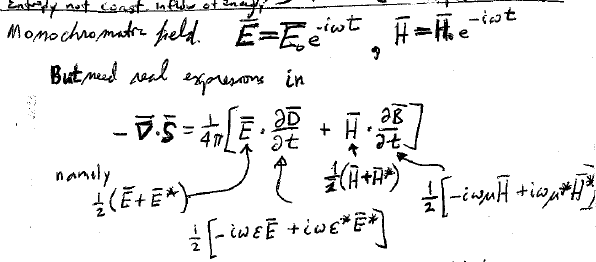 Entropy not const influx of energy,
Monochromatic field. E̅ = E̅₀e^{-iωt} , H̅ = H̅₀e^{-iωt}
But need real expressions in
-∇̅·S̅ = 1/4π [E̅ · ∂D̅/∂t + H̅ · ∂B̅/∂t]
namely
1/2(E̅+E̅*) 1/2(H̅+H̅*) 1/2[-iωμH̅ + iωμ*H̅*]
1/2[-iωεE̅ + iωε*E̅*]